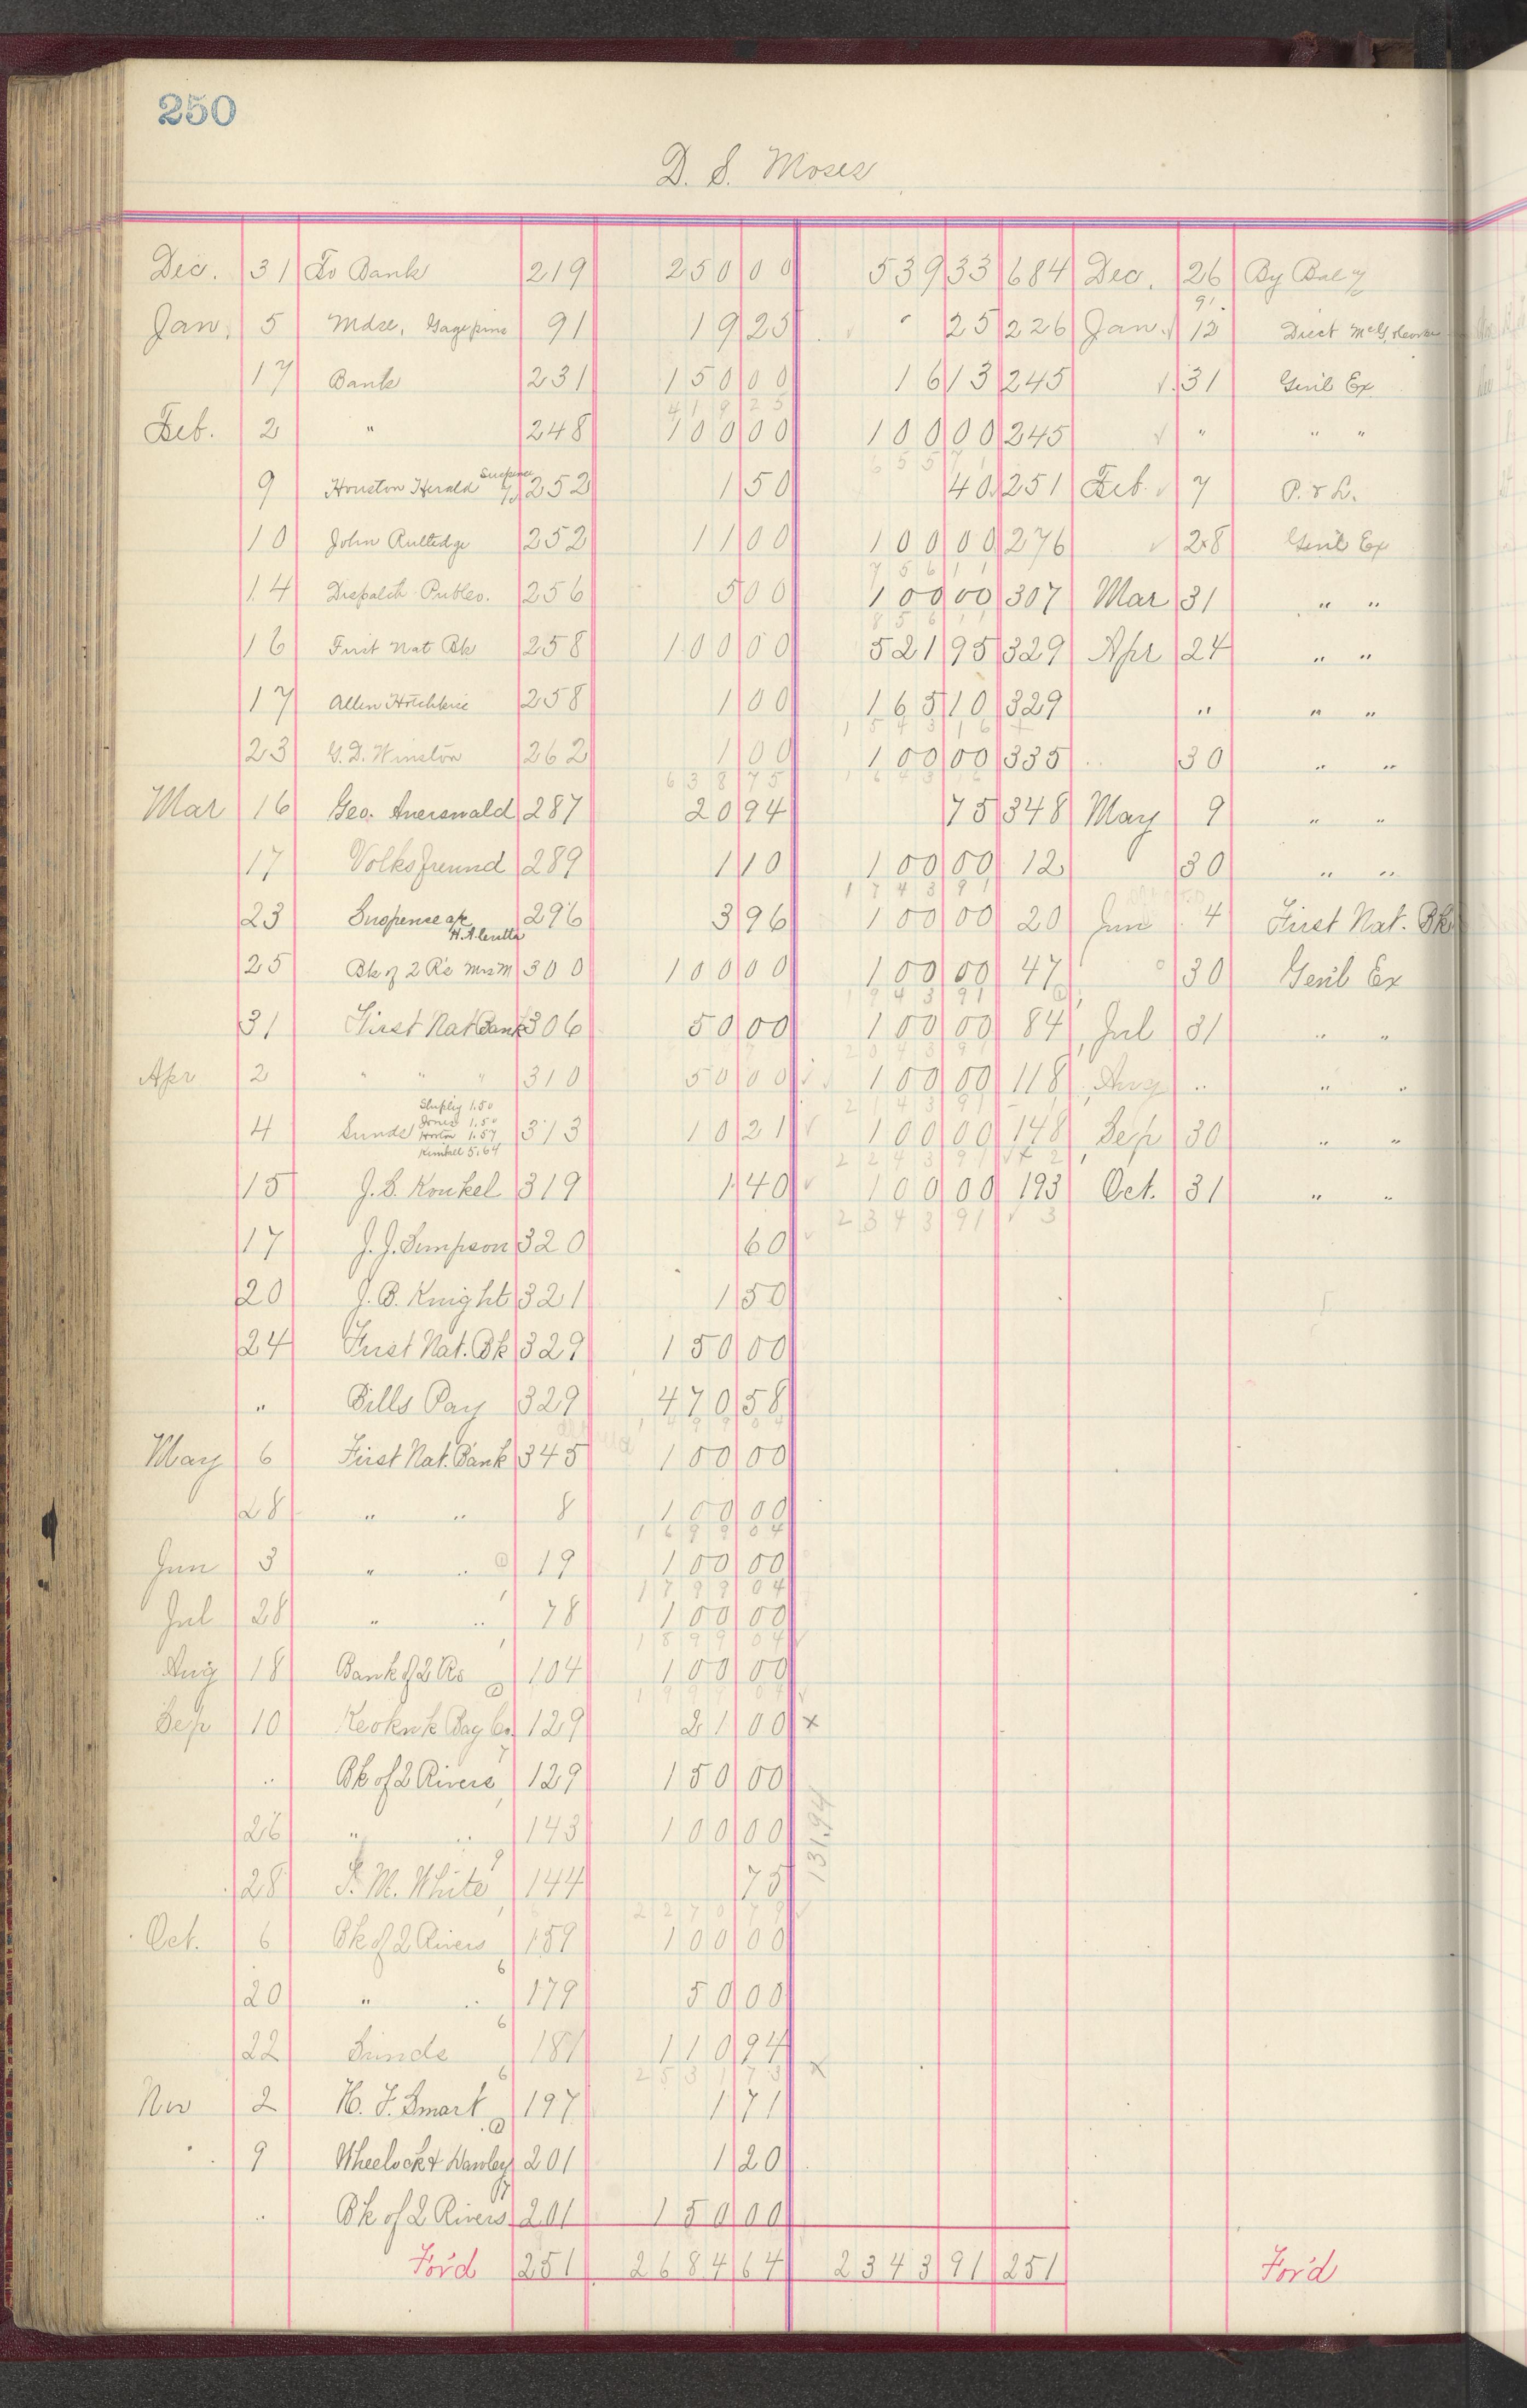 250
D. S. Moses
Dec. 31 To Bank 219 250 00 539 33 684 Dec. 26 By Bal
91
Jan. 5 Mdse, Gagepins 91 19 25 " 25 226 Jan. 12 Diect McG,
17 Bank 231 150 00 16 13 245 31 Gen'l Ex
419 25
Feb. 2 " 248 100 00 100 00 245 " " "
655 71
9 Houston Herald Suspense 252 1 50 40 251 Feb. 7 P. & L.
10 John Rutledge 252 11 00 100 00 276 28 Gen'l Ex
756 11
14 Dispatch Publco. 256 5 00 100 00 307 Mar 31 " "
856 11
16 First Nat Bk 258 100 00 521 95 329 Apr 24 " "
17 Allen Hotchkiss 258 1 00 165 10 329 " " "
1543 16
23 G. D. Winston 262 1 00 100 00 335 30 " "
638 75 1643 16
Mar 16 Geo. Auerswald 287 20 94 75 348 May 9 " "
17 Volksfreund 289 1 10 100 00 12 30 " "
1743 91
23 Suspense a/c 296 3 96 100 00 20 Jun 4 First Nat. Bk
25 Bk of 2 R's Mrs M 300 100 00 100 00 47 30 Gen'l Ex
1943 91
31 First Nat Bank 306 50 00 100 00 84 Jul 31 " "
2043 91
Apr 2 " " " 310 50 00 100 00 118 Aug " " "
2143 91
Shuplig 1.50
Jones 1.50
4 Sunds Horton 1.57 313 10 21 100 00 148 Sep 30 " "
Kimball 5.64
2243 91
15 J. S. Konkel 319 1 40 100 00 193 Oct. 31 " "
2343 91 3
17 J. J. Simpson 320 60
20 J. B. Knight 321 1 50
24 First Nat. Bk 329 150 00
" Bills Pay 329 470 58
1499 04
May 6 First Nat. Bank 345 100 00
28 " " 8 100 00
1699 04
Jun 3 " " 19 100 00
1799 04
Jul 28 " " 78 100 00
1899 04
Aug 18 Bank of 2 Rs 104 100 00
1999 04
Sep 10 Keokuk Bag Co. 129 21 00 x
" Bk of 2 Rivers 129 150 00
26 " " 143 100 00
131.94
28 F. M. White 144 75
2270 79
Oct. 6 Bk of 2 Rivers 159 100 00
20 " " 179 50 00
22 Sunds 181 110 94
2531 73 x
Nov 2 H. F. Smart 197 1 71
" 9 Wheelock & Hawley 201 1 20
" Bk of 2 Rivers 201 150 00
For'd 251 2684 64 2343 91 251 For'd